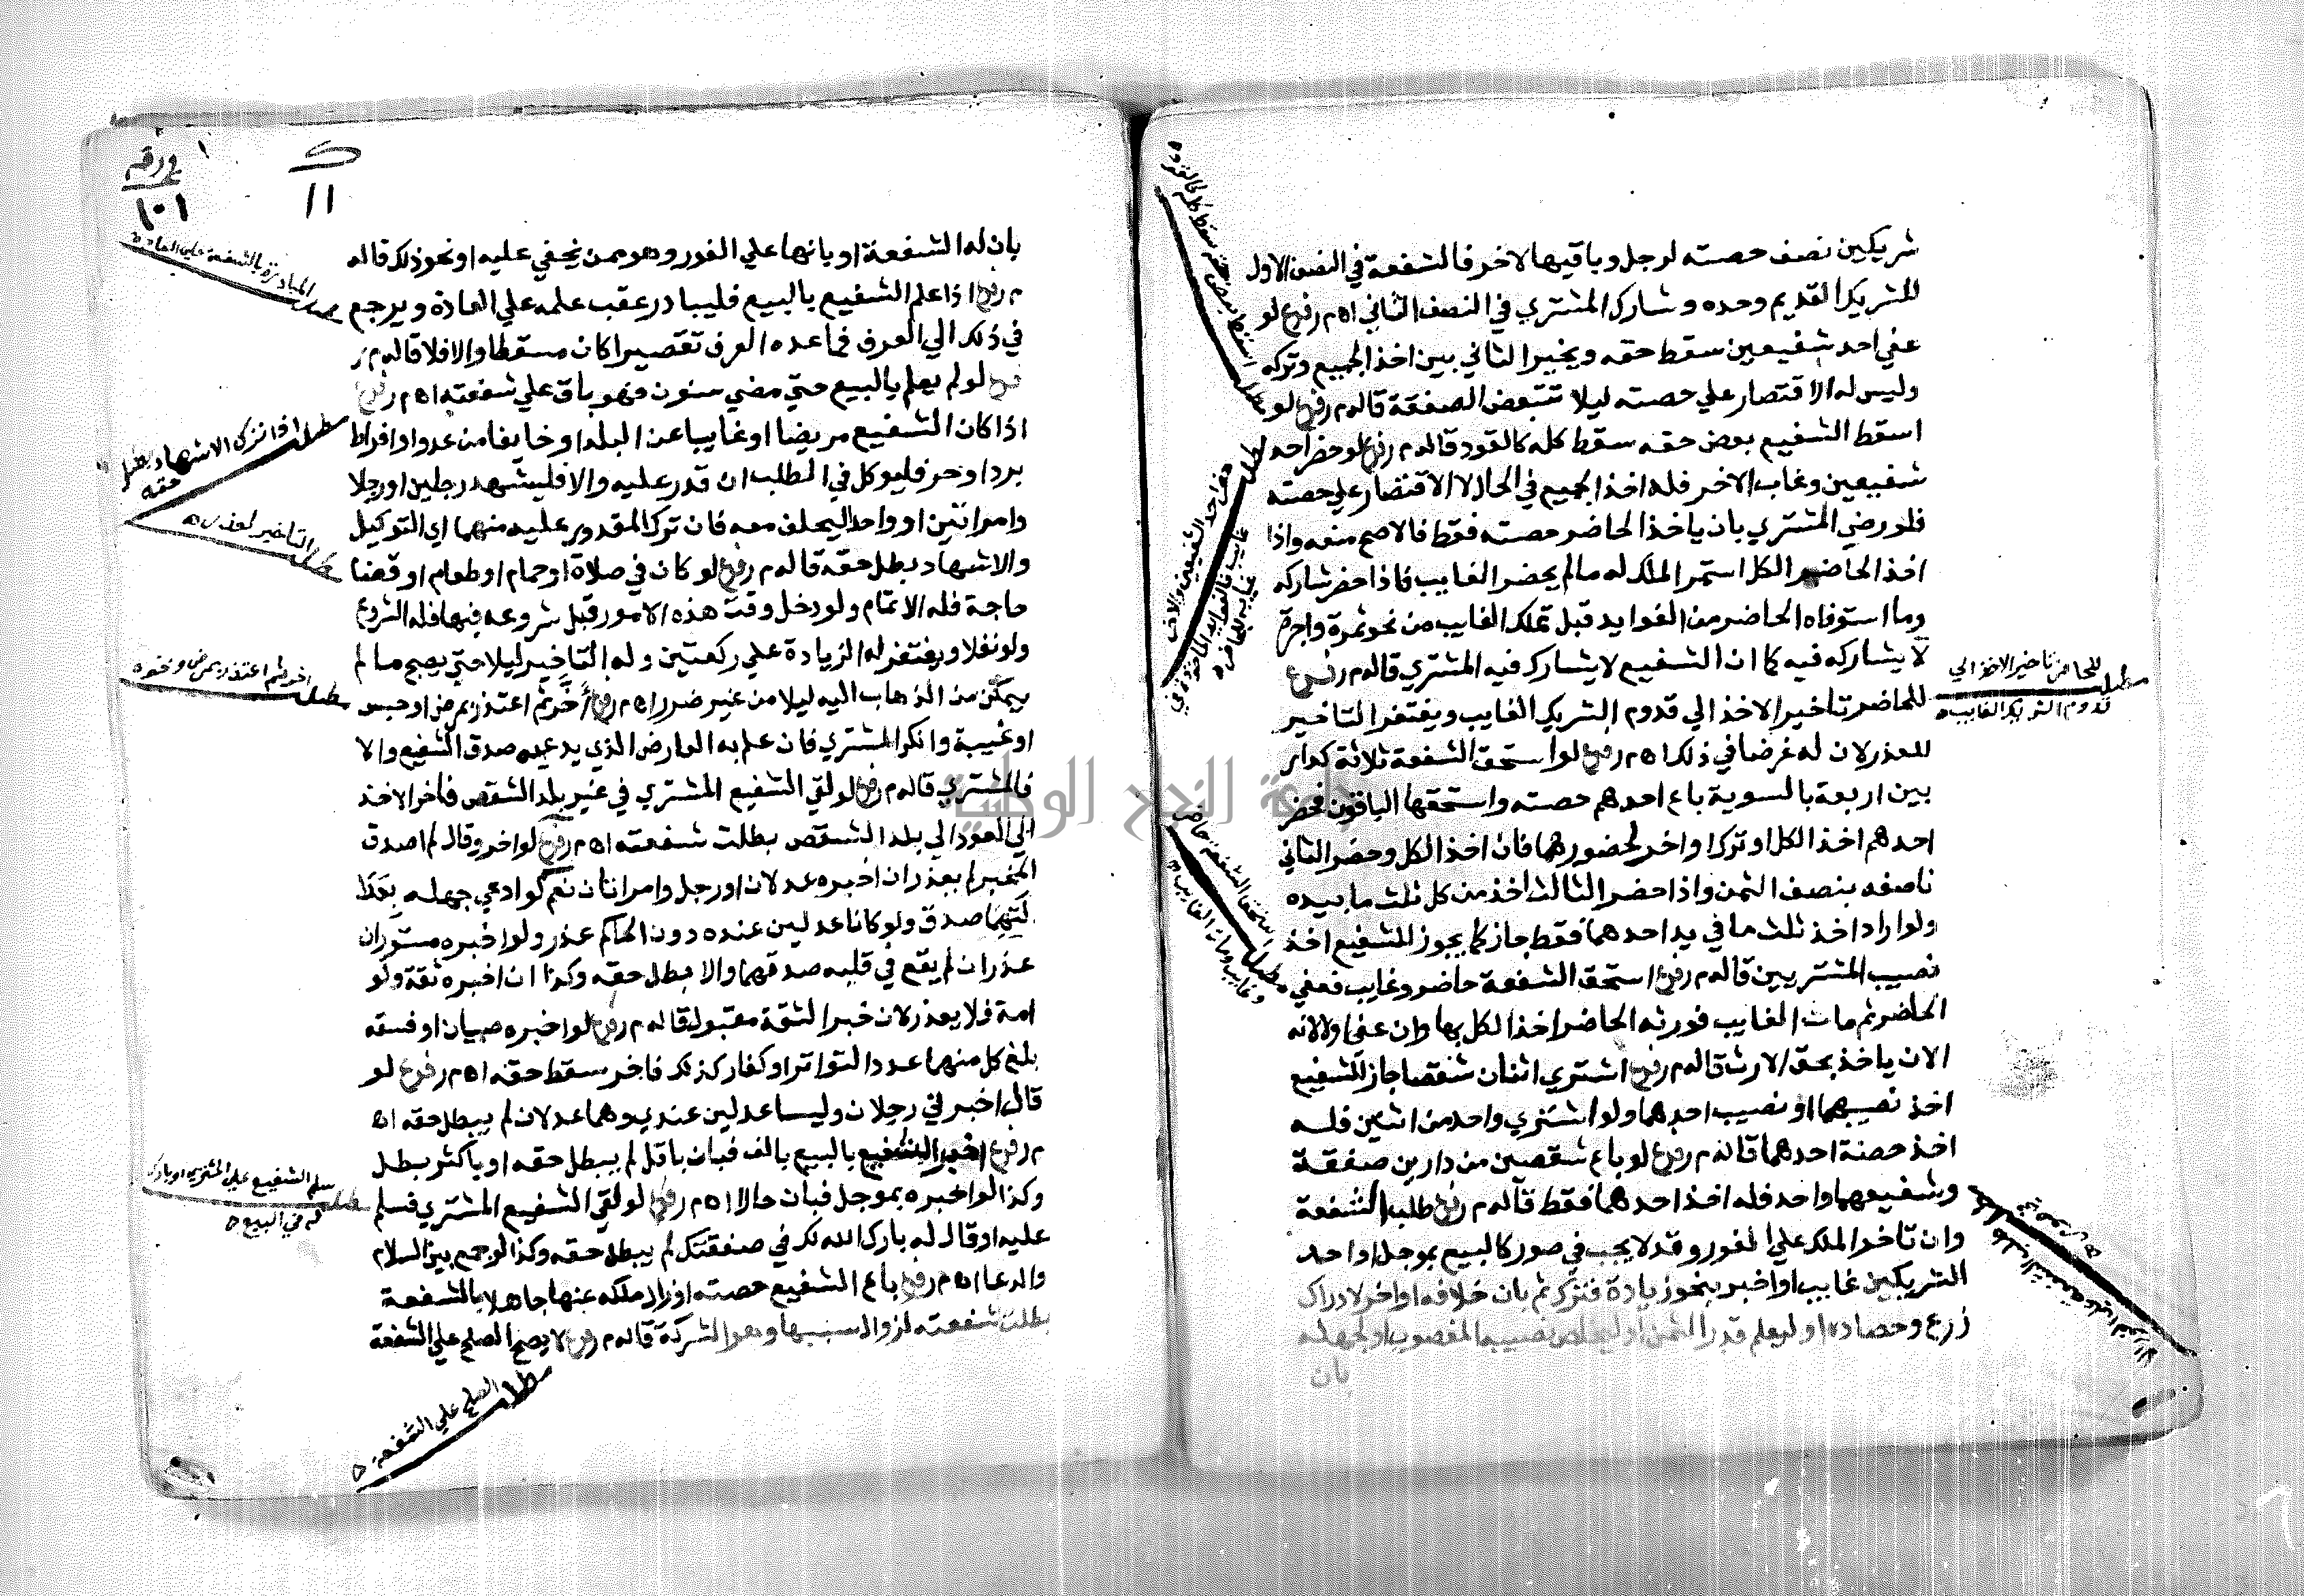 شريكين نصف حصته لرجل وباقيها لاخر فالشفعة في النصف الاول
للشريك القديم وحده وشارك المشتري في النصف الثاني اه م ر فرع لو
عفي احد شفيعين سقط حقه ويخير الثاني بين اخذ الجميع وتركه
وليس له الاقتصار علي حصته ليلا تتبعض الصفقة قاله م ر فرع لو
اسقط الشفيع بعض حقه سقط كله كالقود قاله م ر فرع لو حضر احد
شفيعين وغاب الاخر فله اخذ الجميع في الحال لا الاقتصار علي حصته
فلو رضي المشتري بان ياخذ الحاضر حصته فقط فالاصح منعه واذا
اخذ الحاضر الكل استمر الملك له ما لم يحضر الغايب فاذا حضر شاركه
وما استوفاه الحاضر من الفوايد قبل تملك الغايب من نحو ثمرة واجرة
لا يشاركه فيه كما ان الشفيع لا يشارك فيه المشتري قاله م ر فرع
للحاضر تاخير الاخذ الي قدوم الشريك الغايب ويغتفر التاخير
للعذر لان له غرضا في ذلك اه م ر فرع لو استحق الشفعة ثلاثة كدار
بين اربعة بالسوية باع احدهم حصته واستحقها الباقون فحضر
احدهم اخذ الكل او ترك او اخر لحضورهما فان اخذ الكل وحضر الثاني
ناصفه بنصف الثمن واذا حضر الثالث اخذ من كل ثلث ما بيده
ولو اراد اخذ ثلث ما في يد احدهما فقط جاز كما يجوز للشفيع اخذ
نصيب المشتريين قاله م ر فرع استحق الشفعة حاضر وغايب فعفي
الحاضر ثم مات الغايب فورثه الحاضر اخذ الكل بها وان عفي اولا لانه
الان ياخذ بحق الارث قاله م ر فرع اشتري اثنان شقصا جاز للشفيع
اخذ نصيبهما او نصيب احدهما ولو اشتري واحد من اثنين فله
اخذ حصة احدهما قاله م ر فرع لو باع شقصين من دارين صفقة
وشفيعهما واحد فله اخذ احدهما فقط قاله م ر فرع طلب الشفعة
وان تاخر الملك علي الفور وقد لا يجب في صور كالبيع بموجل او احد
الشريكين غايب او اخبر بنحو زيادة فترك ثم بان خلافه او اخر لادراك
زرع وحصاده او ليعلم قدر الثمن او ليخلص نصيبه المغصوب او لجهله
بان
اسقط بعض حقه سقط كله كالقود
مطلب حضر احد الشفيعين والاخر
غايب فالفوايد الماخوذة في
غيابه للحاضر
مطلب للحاضر تاخير الاخذ الي
قدوم الشريك الغايب
مطلب استحق الشفعة حاضر
وغايب ومات الغايب
مطلب طلب الشفعة علي الفور الا
في صور
في ورقه ١
١٠١
ك
١١
بان له الشفعة او بانها علي الفور وهو ممن يخفي عليه او نحو ذلك قاله
م ر فرع اذا علم الشفيع بالبيع فليبادر عقب علمه علي العادة ويرجع
في ذلك الي العرف فما عده العرف تقصيرا كان مسقطا والا فلا قاله م ر
فرع لو لم يعلم بالبيع حتي مضي سنون فهو باق علي شفعته اه م ر فرع
اذا كان الشفيع مريضا او غايبا عن البلد او خايفا من عدو او افراط
برد او حر فليوكل في الطلب ان قدر عليه والا فليشهد رجلين او رجلا
وامراتين او واحد اليحلف معه فان ترك المقدور عليه منهما اي التوكيل
والاشهاد بطل حقه قاله م ر فرع لو كان في صلاة او حمام او طعام او قضا
حاجة فله الاتمام ولو دخل وقت هذه الامور قبل شروعه فيها فله الشروع
ولو نفلا ويغتفر له الزيادة علي ركعتين وله التاخير ليلا حتي يصبح ما لم
يتمكن من الذهاب اليه ليلا من غير ضرر اه م ر فرع اخر ثم اعتذر بمرض او حبس
او غيبة وانكر المشتري فان علم به العارض الذي يدعيه صدق الشفيع والا
فالمشتري قاله م ر فرع لو لقي الشفيع المشتري في غير بلد الشقص فاخر الاخذ
الي العود الي بلد الشقص بطلت شفعته اه م ر فرع لو اخر وقال لم اصدق
المخبر لم يعذر ان اخبره عدلان او رجل وامراتان نعم لو ادعي جهله بعدالتهما
صدق ولو كانا عدلين عنده دون الحاكم عذر ولو اخبره مستوران
عذر ان لم يقع في قلبه صدقهما والا بطل حقه وكذا ان اخبره ثقة ولو
امة فلا يعذر لان خبر الثقة مقبول قاله م ر فرع لو اخبره صبيان او فسقه
بلغ كل منهما عدد التواتر او كفار كذلك فاخر سقط حقه اه م ر فرع لو
قال اخبرني رجلان وليسا عدلين عندي وهما عدلان لم يبطل حقه اه
م ر فرع اخبر الشفيع بالبيع بالف فبان باقل لم يبطل حقه او باكثر بطل
وكذا لو اخبره بموجل فبان حالا اه م ر فرع لو لقي الشفيع المشتري فسلم
عليه او قال له بارك الله لك في صفقتك لم يبطل حقه وكذا لو جمع بين السلام
والدعا اه م ر فرع باع الشفيع حصته او زال ملكه عنها جاهلا بالشفعة
بطلت شفعته لزوال سببها وهو الشركة قاله م ر فرع لا يصح الصلح علي الشفعة
مطلب المبادرة بالشفعة علي العادة
مطلب اذا ترك الاشهاد بطل
حقه
مطلب التاخير لعذر
مطلب اخر ثم اعتذر بمرض ونحوه
مطلب سلم الشفيع علي المشتري او بارك
له في البيع
مطلب الصلح علي الشفعة
جامعة النجاح الوطنية